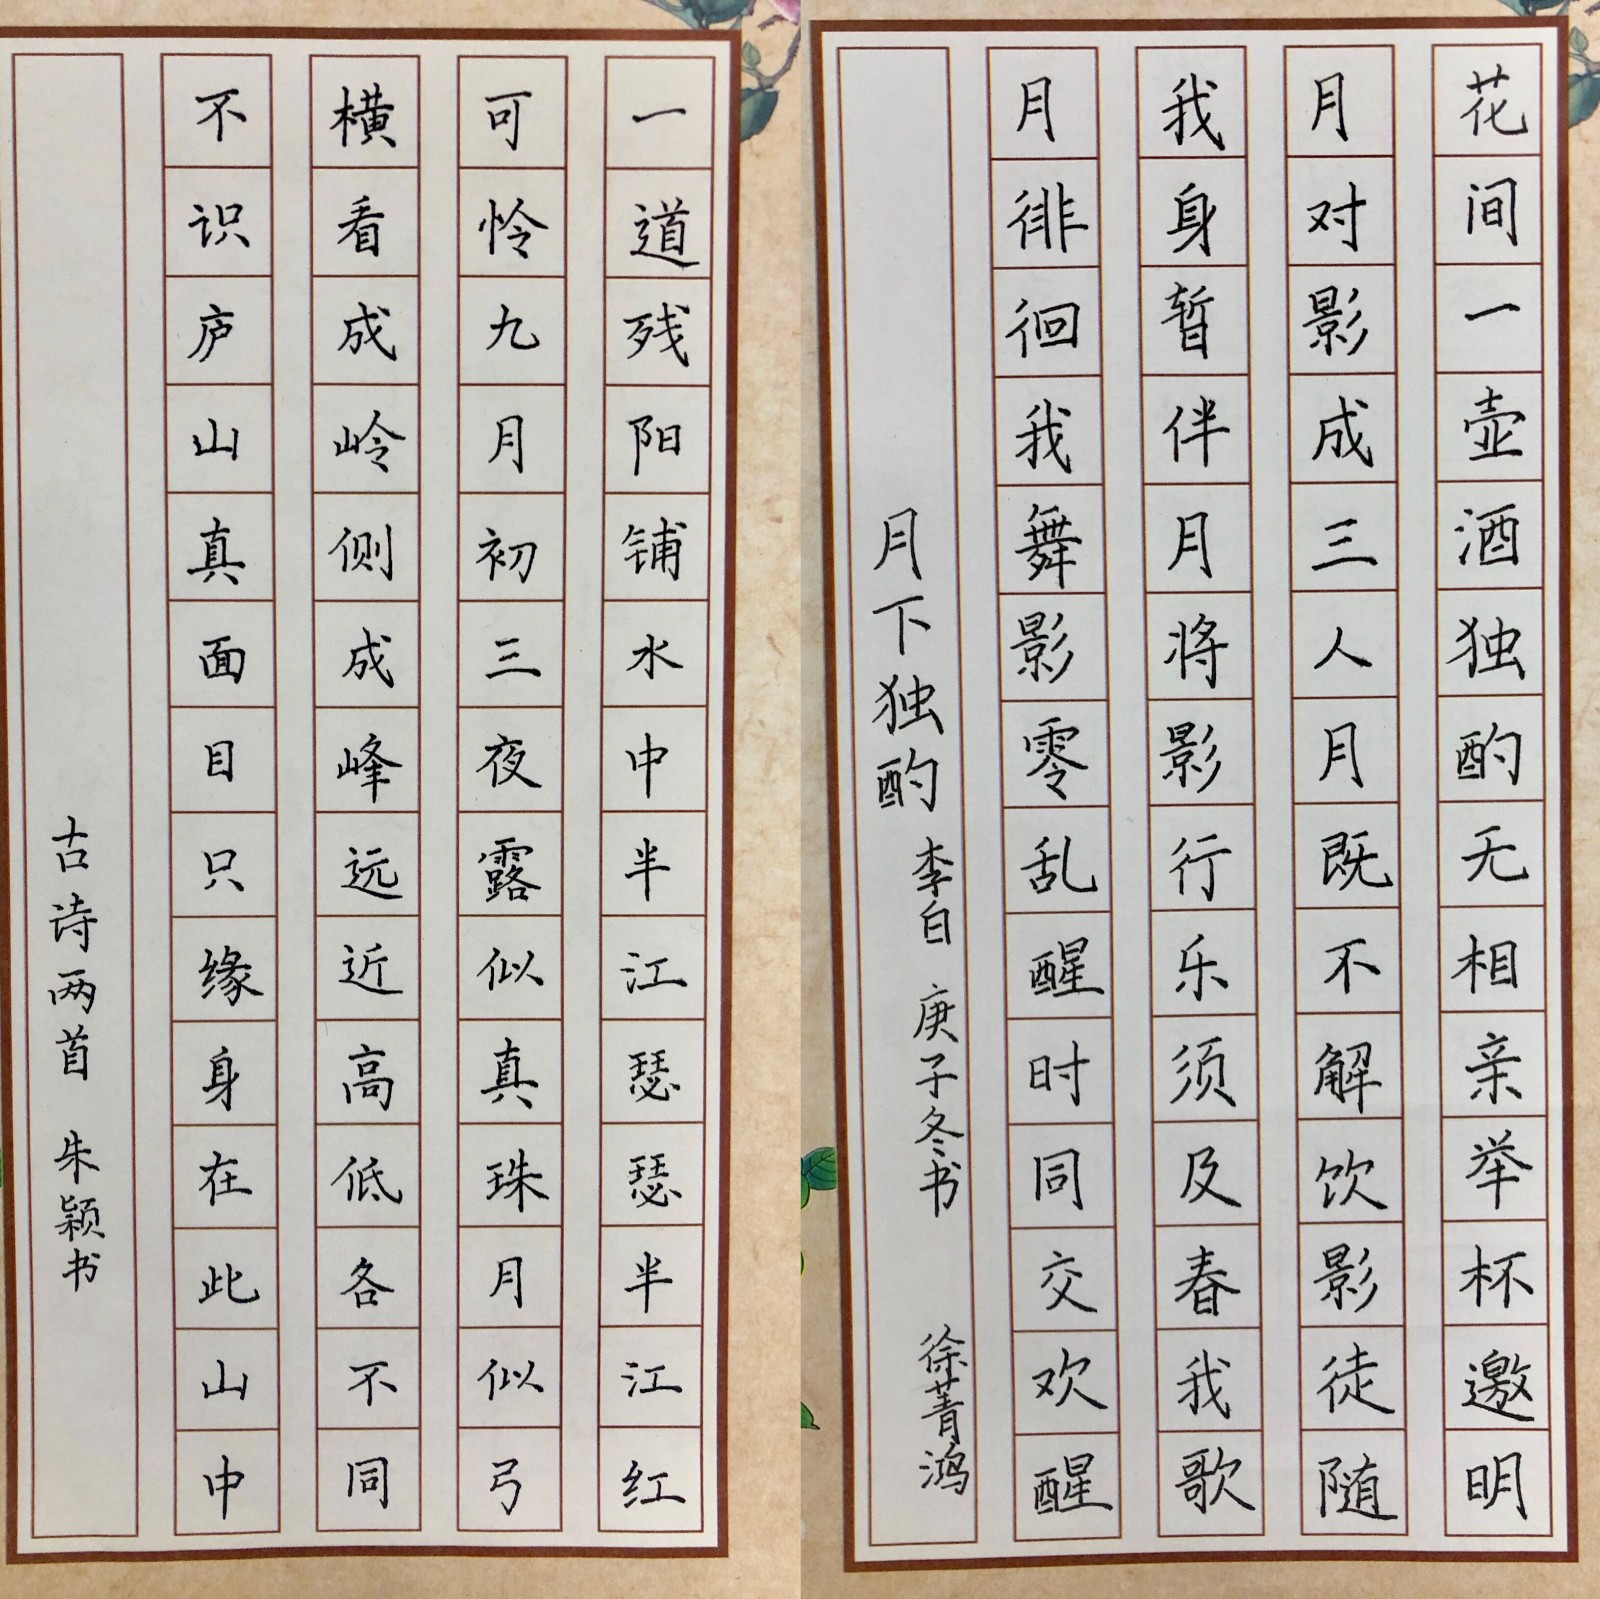 一道残阳铺水中半江瑟瑟半江红
可怜九月初三夜露似真珠月似弓
横看成岭侧成峰远近高低各不同
不识庐山真面目只缘身在此山中
古诗两首 朱颖书
花间一壶酒独酌无相亲举杯邀明
月对影成三人月既不解饮影徒随
我身暂伴月将影行乐须及春我歌
月徘徊我舞影零乱醒时同交欢醒
月下独酌 李白 庚子冬书 徐菁鸿